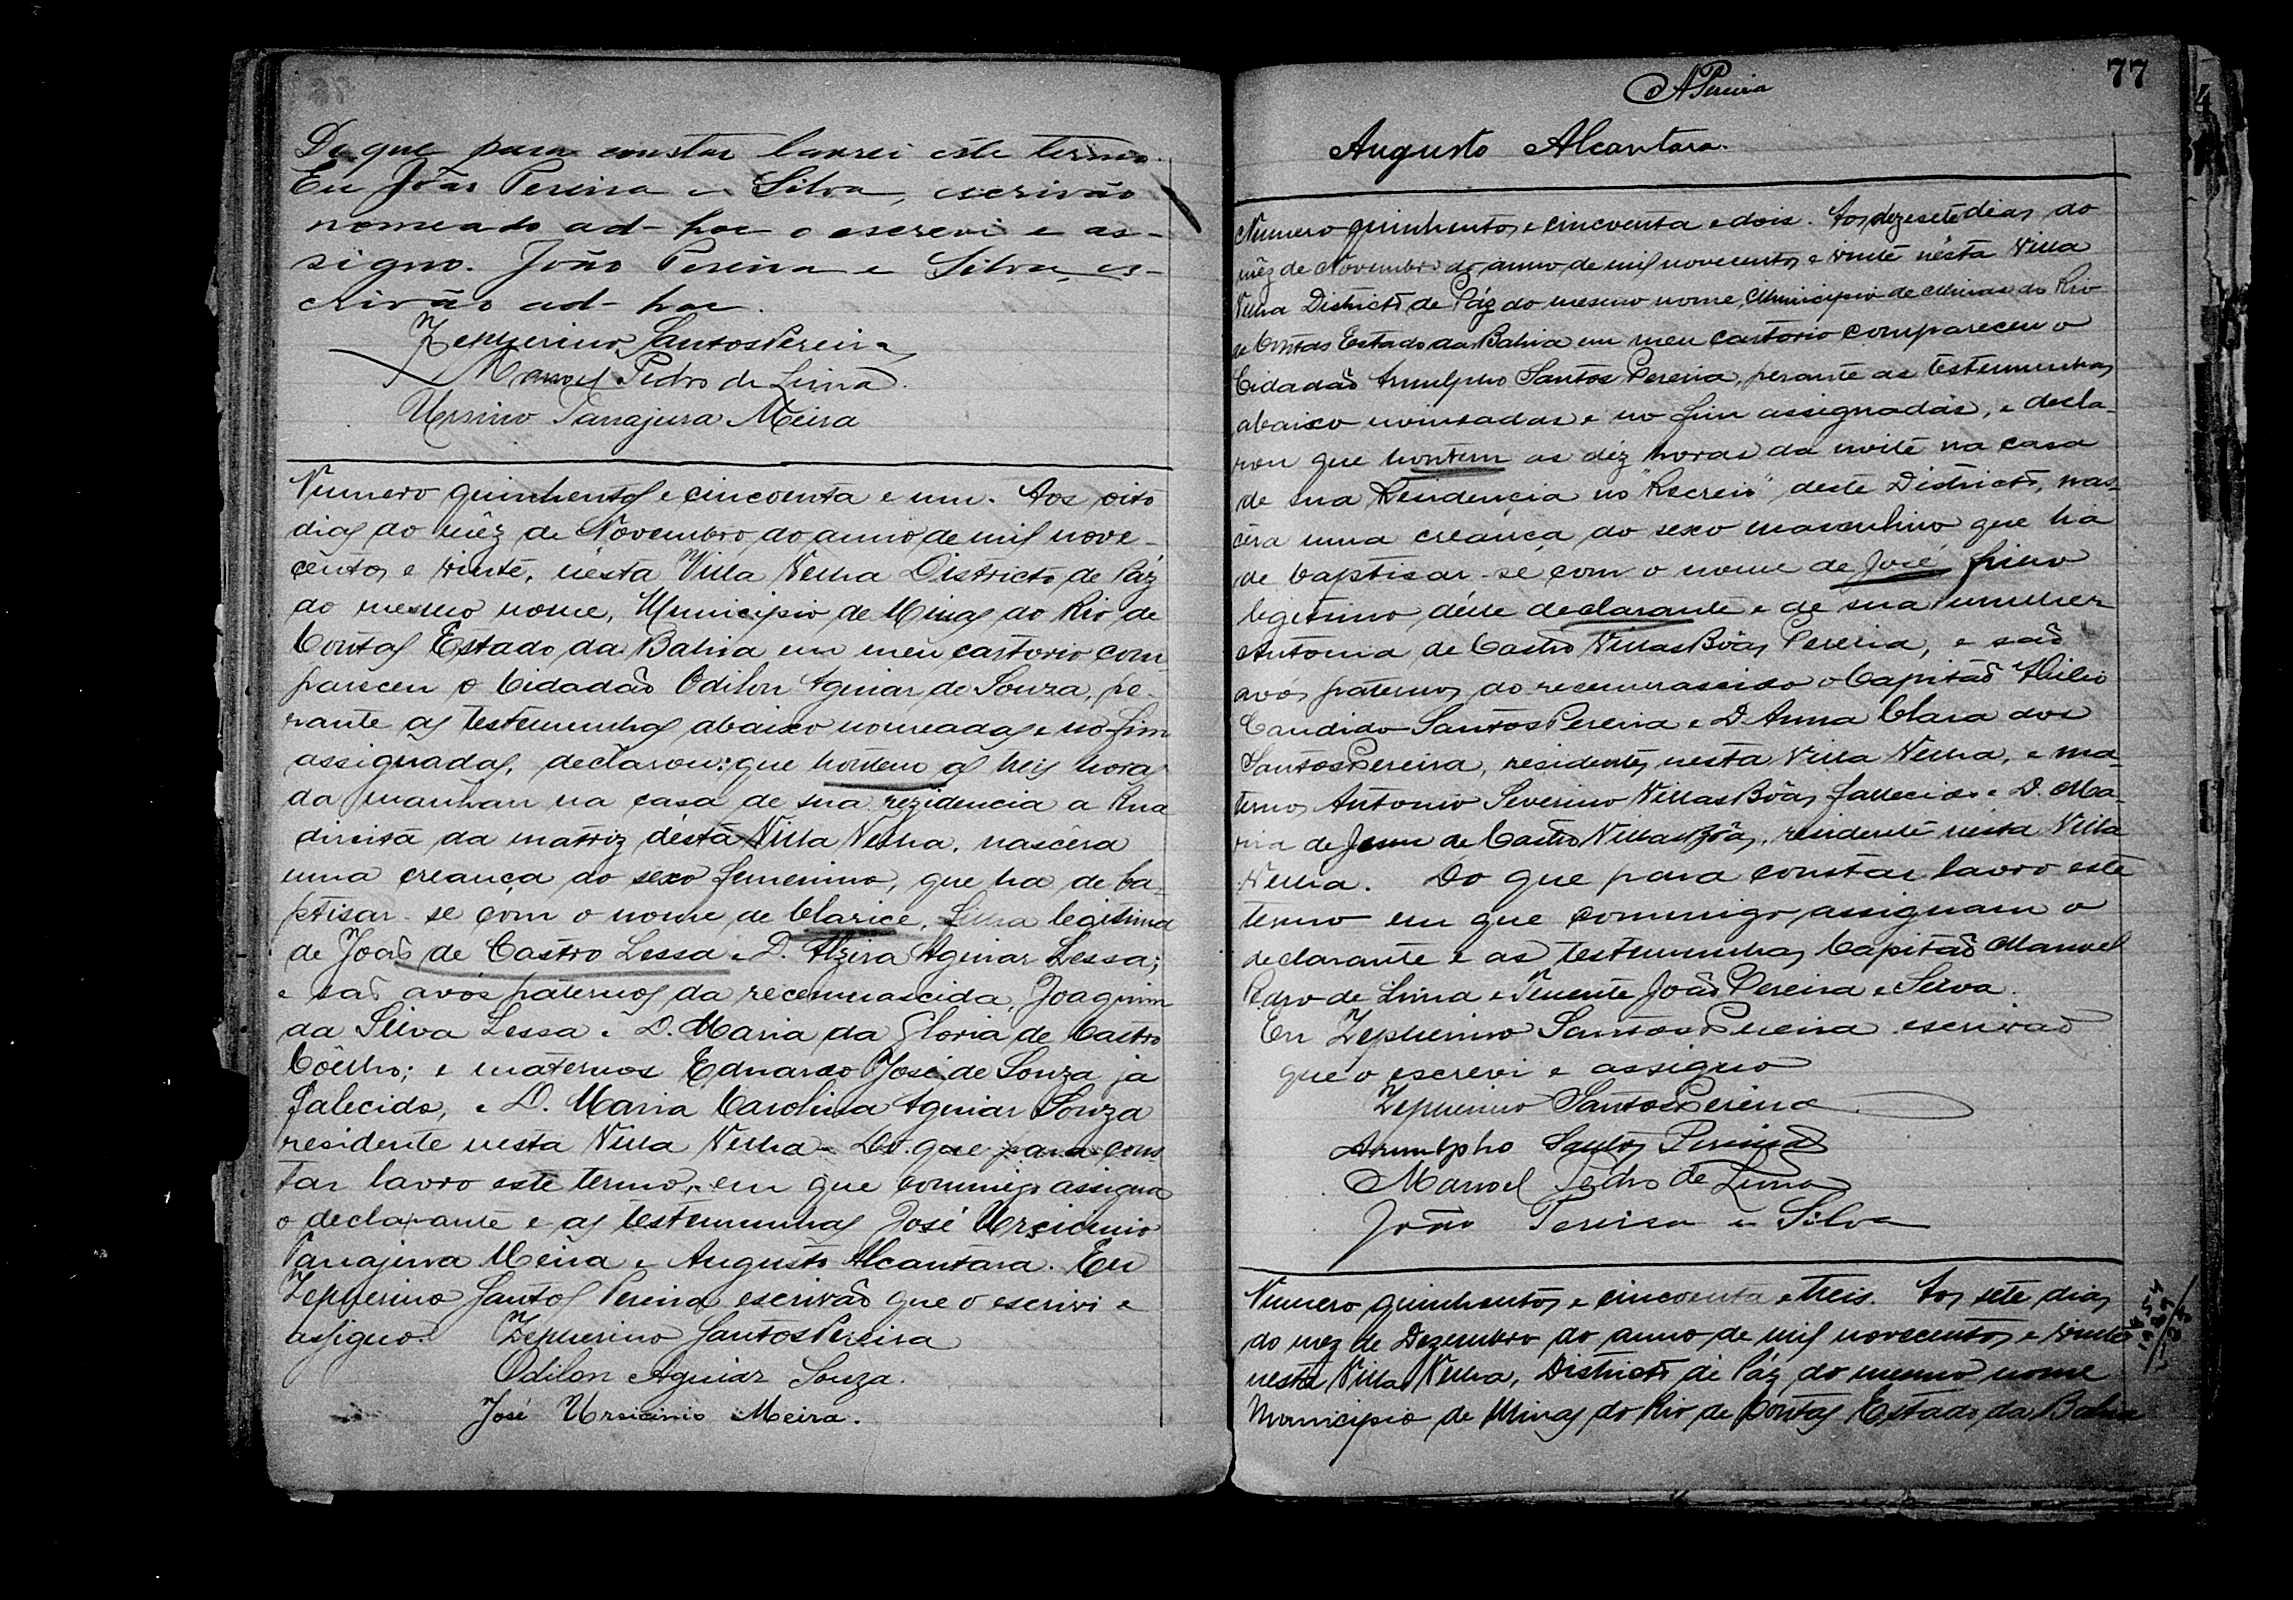 De que para constar lavrei este termo.
Eu João Pereira e Silva, escrivão
nomeado ad-hoc o escrevi e as-
signo. João Pereira e Silva, es-
crivão ad-hoc.
Zepherino SantosPereira
Manoel Pedro de Lima.
Ursino Tanajura Meira
Numero quinhentos e cincoenta e um. Aos oito
dias do mêz de Novembro do anno de mil nove-
centos e vinte, nésta Villa Velha Districto de Páz
do mesmo nome, Municipio de Minas do Rio de
Contas Estado da Bahia em meu cartorio com-
pareceu o Cidadão Odilon Aguiar de Souza, pe-
rante as testemunhas abaixo nomeadas e no fim
assignadas, declarou: que hontem as treis horas
da manhan na casa de sua rezidencia a Rua
direita da matriz désta Villa Velha, nascêra
uma creança do sexo femenino, que ha de ba-
ptisar-se com o nome de Clarice, filha legitima
de João de Castro Lessa e D. Alzira Aguiar Lessa;
e são avós paternos da recemnascida, Joaquim
da Silva Lessa e D. Maria da Gloria de Castro
Coêlho; e maternos Eduardo José de Souza já
falecido, e D. Maria Carolina Aguiar Souza
residente nesta Villa Velha. Do que para cons-
tar lavro este termo, em que commigo assigna
o declarante e as testemunhas José Ursicinio
Tanajura Meira e Augusto Alcantara. Eu
Zepherino Santos Pereira escrivão que o escrivi e
assigno. Zepherino SantosPereira
Odilon Aguiar Souza.
José Ursicinio Meira.
77
APereira
Augusto Alcantara.
Numero quinhentos e cincoenta e dois. Aos dezesete dias do
mêz de Novembro do anno de mil novecentos e vinte nésta Villa
Velha Districto de Páz do mesmo nome, Municipio de Minas do Rio
de Contas Estado da Bahia em meu cartorio compareceu o
Cidadão Arnulpho Santos Pereira, perante as testemunhas
abaixo nomeadas e no fim assignadas, e decla-
rou que hontem as déz horas da noite na casa
de sua Residencia no "Recreio" deste Districto, nas-
cêra uma creança do sexo masculino que ha
de baptisar-se com o nome de José filho
legitimo déste declarante e de sua mulher
Antonia de Castro VillasBôas Pereria, e são
avós paternos do recemnascido o Capitão Hilio
Candido SantosPereira e D. Anna Clara dos
SantosPereira, residentes nesta Villa Velha, e ma-
ternos Antonio Severino VillasBôas fallecido e D. Ma-
ria de Jesus de Castro VillasBôas, residente nésta Villa
Velha. Do que para constar lavro este
termo em que commigo assignam o
declarante e as testemunhas Capitão Manoel
Pedro de Lima e Tenente João Pereira e Silva.
Eu Zepherino SantosPereira escrivão
que o escrevi e assigno
Zepherino SantosPereira
Arnulpho Santos Pereira
Manoel Pedro de Lima
João Pereira e Silva
Numero quinhentos e cincoenta e treis. Aos sete dias
do mez de Dezembro do anno de mil novecentos e vinte
nésta Villa Velha, Districto de Páz do mesmo nome
Municipio de Minas do Rio de Contas Estado da Bahia